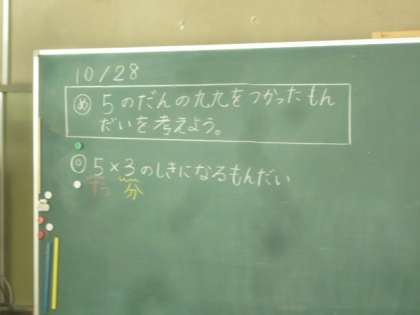 10/28
め 5のだんの九九をつかったもん
だいを考えよう。
5×3のしきになるもんだい
分